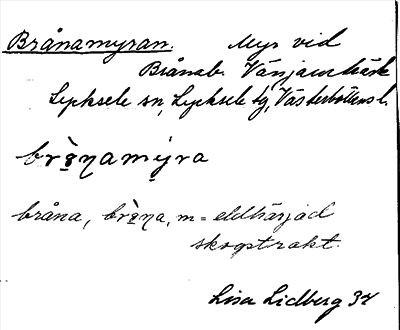 Brånamyran. Myr vid
Brånab. Vänjaurbäck
Lycksele sn, Lycksele tg, Västerbottens l.
brò̰namy̌ra
bråna, brò̰na, m = eldhärjad
skogstrakt.
Lisa Lidberg 34